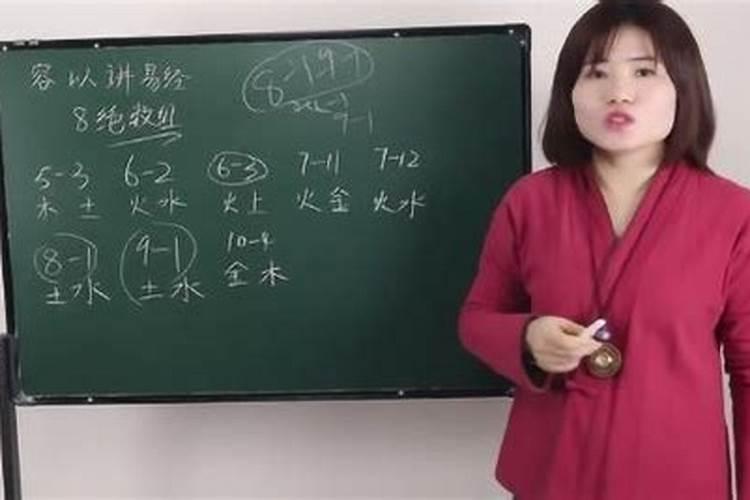 容以讲易经
8绝数组
8-1 9-1
9-1
5-3 6-2 6-3 7-11 7-12
木土 火水 火土 火金 火水
8-1 9-1 10-4
土水 土水 金木